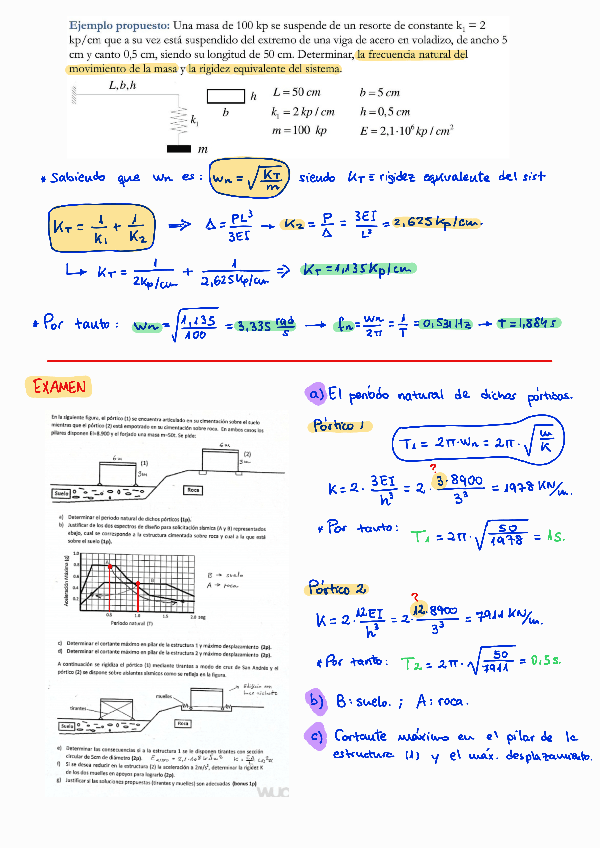 Ejemplo propuesto: Una masa de 100 kp se suspende de un resorte de constante k₁ = 2
kp/cm que a su vez está suspendido del extremo de una viga de acero en voladizo, de ancho 5
cm y canto 0,5 cm, siendo su longitud de 50 cm. Determinar, la frecuencia natural del
movimiento de la masa y la rigidez equivalente del sistema.
L,b,h
h
b
k₁
m
L = 50 cm b = 5 cm
k₁ = 2 kp / cm h = 0,5 cm
m = 100 kp E = 2,1·10⁶ kp / cm²
* Sabiendo que wn es: wn = √(KT/m) siendo KT ≡ rigidez equivalente del sist
KT = 1/K1 + 1/K2 ⇒ Δ = PL³/3EI → K2 = P/Δ = 3EI/L³ = 2,625 Kp/cm.
↳ KT = 1/2Kp/cm + 1/2,625Kp/cm ⇒ KT = 1,135 Kp/cm
* Por tanto: wn = √(1,135/100) = 3,335 rad/s → fn = wn/2π = 1/T = 0,531 Hz → T = 1,884 s
EXAMEN
En la siguiente figura, el pórtico (1) se encuentra articulado en su cimentación sobre el suelo
mientras que el pórtico (2) está empotrado en su cimentación sobre roca. En ambos casos los
pilares disponen EI=8.900 y el forjado una masa m=50t. Se pide:
6 m
(1)
3m
6 m
(2)
3m
Suelo
Roca
a) Determinar el periodo natural de dichos pórticos (1p).
b) Justificar de los dos espectros de diseño para solicitación sísmica (A y B) representados
abajo, cual se corresponde a la estructura cimentada sobre roca y cual a la que está
sobre el suelo (1p).
Aceleración Máxima (g)
1.0
0.8
0.6
0.4
0.2
A
B
0.5 1.0 1.5 2.0 seg
Periodo natural (T)
B → suelo
A → roca
c) Determinar el cortante máximo en pilar de la estructura 1 y máximo desplazamiento (2p).
d) Determinar el cortante máximo en pilar de la estructura 2 y máximo desplazamiento (2p).
A continuación se rigidiza el pórtico (1) mediante tirantes a modo de cruz de San Andrés y el
pórtico (2) se dispone sobre aislantes sísmicos como se refleja en la figura.
tirantes
muelles
Suelo
Roca
e) Determinar las consecuencias si a la estructura 1 se le disponen tirantes con sección
circular de 5cm de diámetro (2p).
f) Si se desea reducir en la estructura (2) la aceleración a 2m/s², determinar la rigidez K
de los dos muelles en apoyos para lograrlo (2p).
g) Justificar si las soluciones propuestas (tirantes y muelles) son adecuadas (bonus 1p)
a) El período natural de dichos pórticos.
Pórtico 1
T1 = 2π·wn = 2π·√(m/K)
?
K = 2· 3EI/h³ = 2· 3·8900/3³ = 1978 KN/m.
* Por tanto: T1 = 2π·√(50/1978) = 1s.
Pórtico 2
?
K = 2· 12EI/h³ = 2· 12·8900/3³ = 7911 KN/m.
* Por tanto: T2 = 2π·√(50/7911) = 0,5s.
b) B: suelo. ; A: roca.
c) Cortante máximo en el pilar de la
estructura (1) y el máx. desplazamiento.
wuo